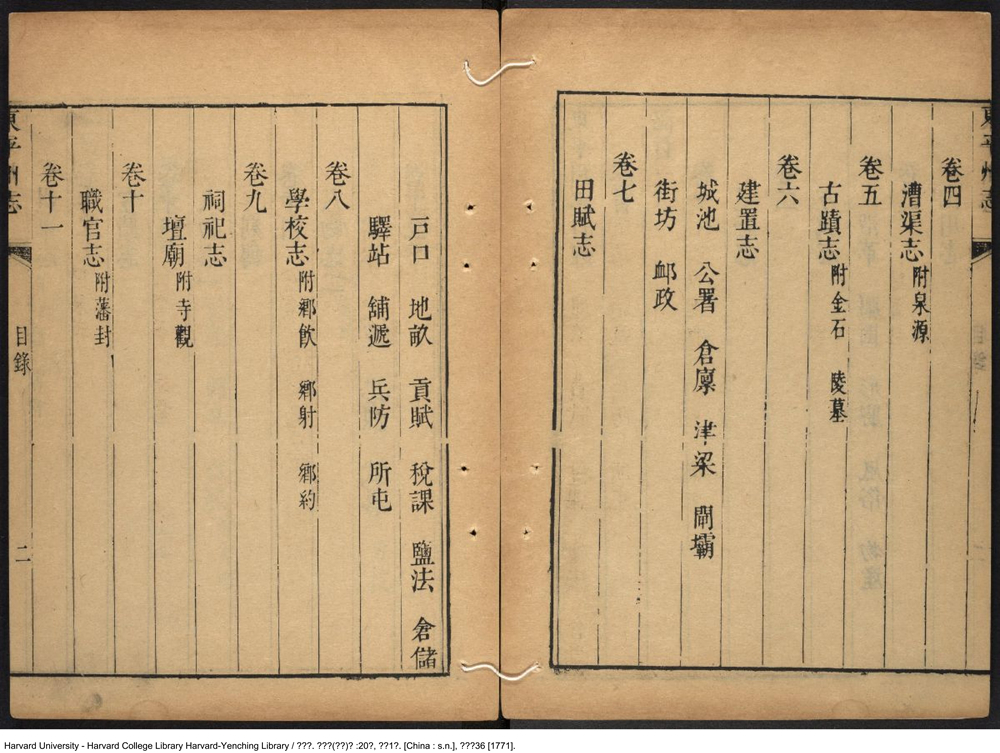 東平州志
卷四
漕渠志 附泉源
卷五
古蹟志 附金石 陵墓
卷六
建置志
城池 公署 倉廪 津梁 閘壩
街坊 邮政
卷七
田賦志
戸口 地畝 貢賦 稅課 鹽法 倉儲
驛站 舖遞 兵防 所屯
卷八
學校志 附鄉飲 鄉射 鄉約
卷九
祠祀志
壇廟 附寺觀
卷十
職官志 附藩封
卷十一
東平州志 目錄 二
Harvard University - Harvard College Library Harvard-Yenching Library / ???. ???(??)? :20?, ??1?. [China : s.n.], ???36 [1771].